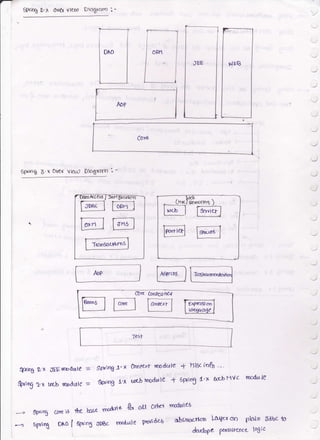 Spring 2.x Over view Diagram :-
DAO
ORM
JEE
WEB
AOP
Core
Spring 3.x Over view Diagram :-
Data Access / Integration
JDBC
ORM
OXM
JMS
Transactions
Web
(MVC / Remoting)
Web
Servlet
Portlet
Struts
AOP
Aspects
Instrumentation
Core Container
Beans
Core
Context
Expression
Language
Test
Spring 2.x JEE module = Spring 1.x Context module + MBC info ...
Spring 2.x web module = Spring 1.x web module + Spring 1.x web MVC module
→ Spring core is the base module for all other modules
→ Spring DAO / Spring JDBC module provides abstraction Layer on plain JDBC to
develope persistence logic